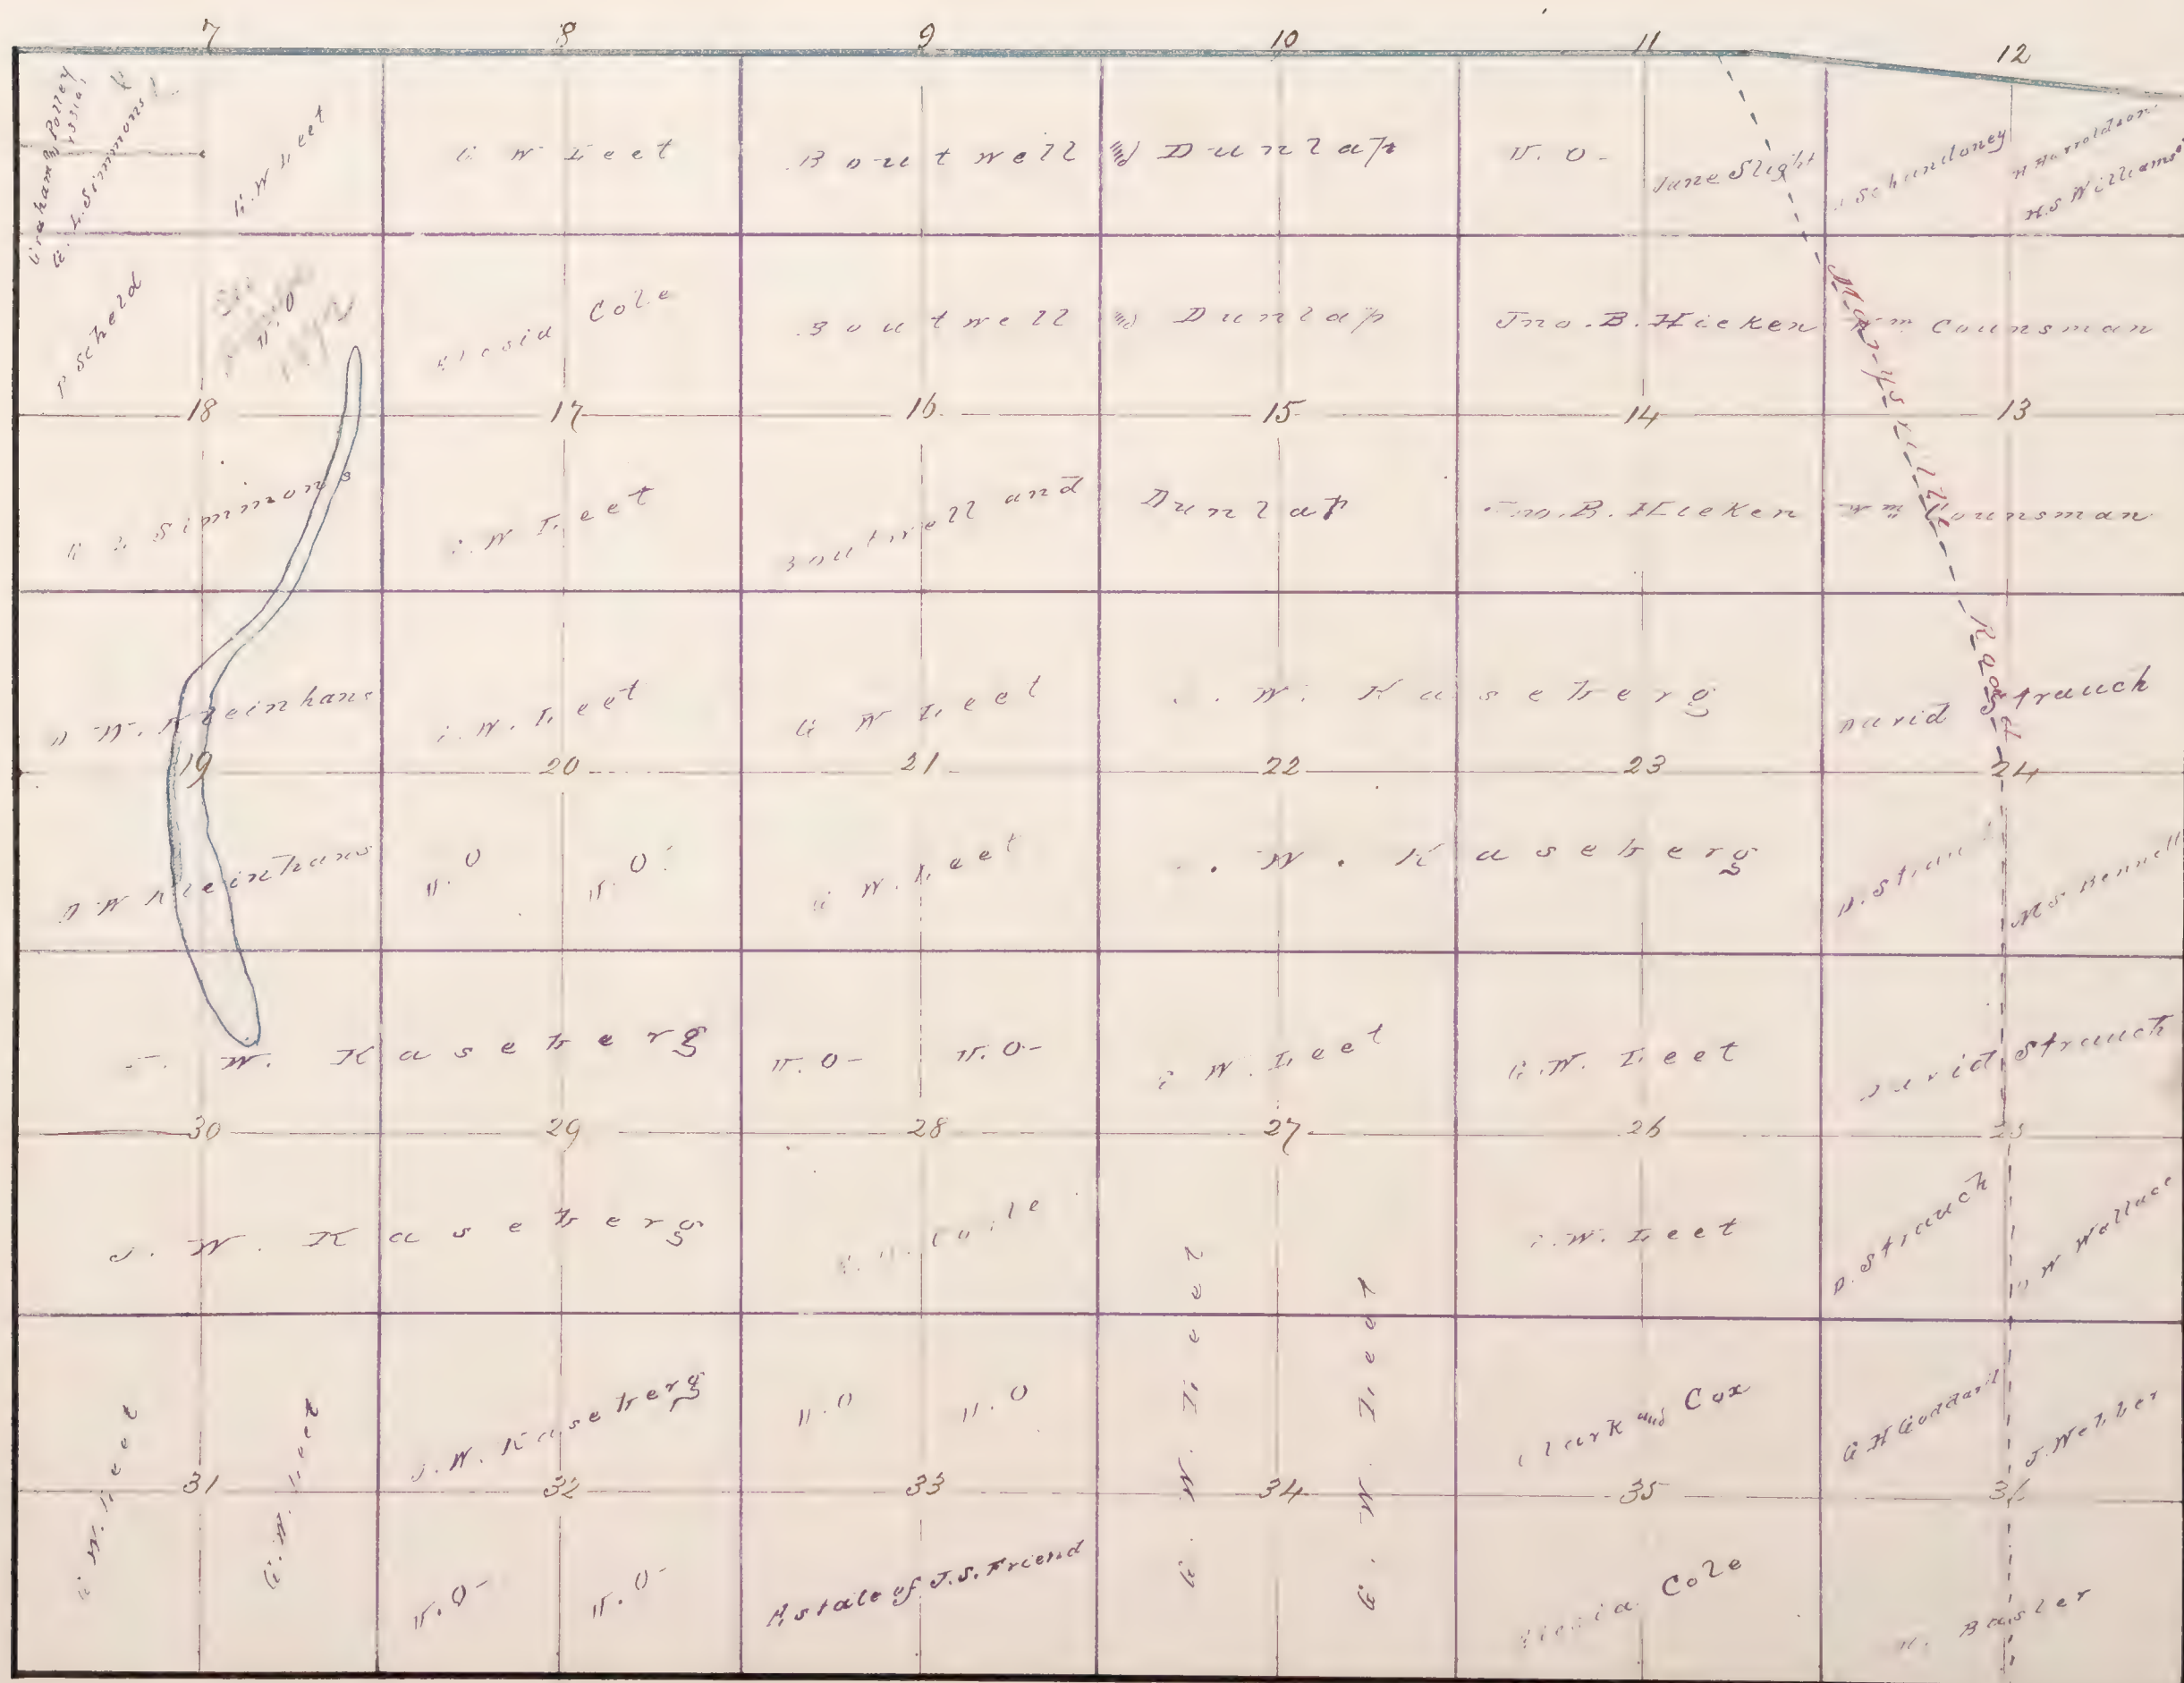 7 8 9 10 11 12
Graham & Polley
G. L. Simmons
G. W. Leet
G W Leet
Boutwell & Dunlap
U. O.
Jane Slight
Schundoney
N Harroldson
H.S Williams
P Scheld
U.O
Cole
Boutwell & Dunlap
Jno. B. Hicken
Wm Counsman
Marysville Road
18 17 16 15 14 13
G L Simmons
G. W Leet
Boutwell and Dunlap
Jno. B. Hicken
Wm Counsman
D. W. Kleinhans
G. W. Leet
G W Leet
J. W. Kaseberg
David Strauch
19 20 21 22 23 24
D W Kleinhans
U. O
U. O.
G W. Leet
J. W. Kaseberg
D. Strauch
M S Bennett
J. W. Kaseberg
U. O-
U. O-
G W. Leet
G. W. Leet
David Strauch
30 29 28 27 26 25
J. W. Kaseberg
G. W. Leet
D. Strauch
W Wallace
G. W. Leet
G. W. Leet
J. W. Kaseberg
U. O
U. O
G. W. Leet
G. W. Leet
Clark and Cox
G H Goddard
J. Webber
31 32 33 34 35 36
U. O-
U. O-
Estate of J. S. Friend
Cole
Basler